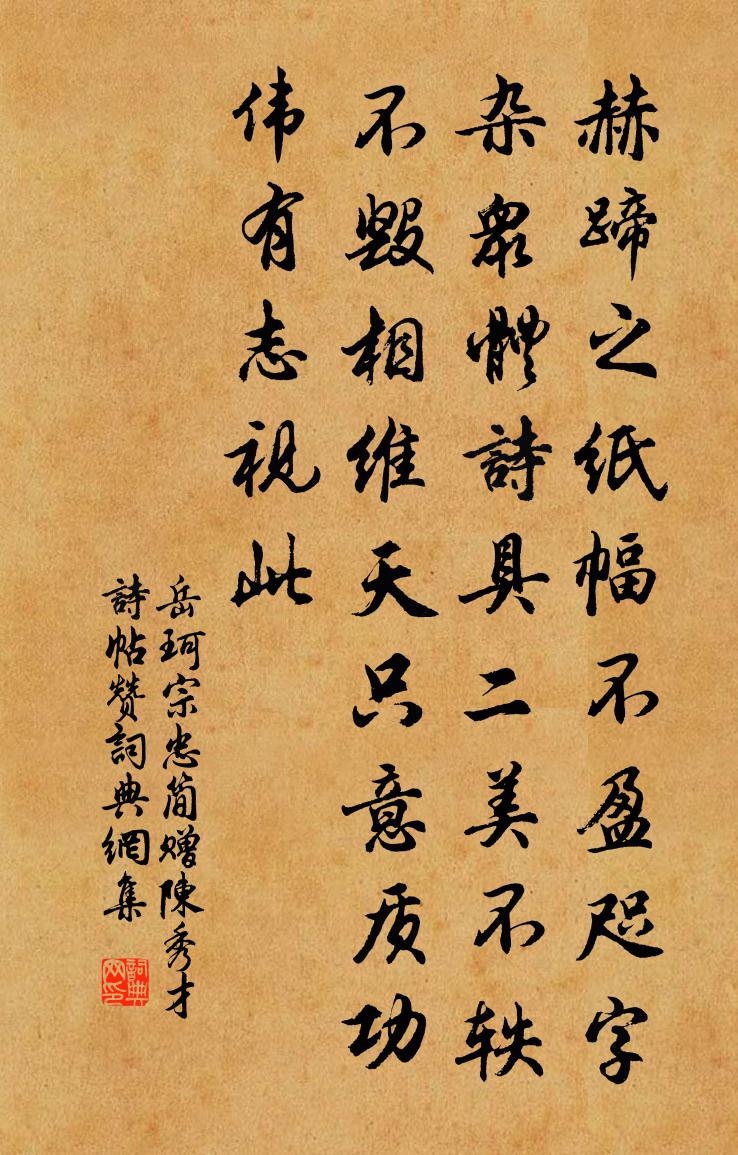 赫蹄之纸幅不盈咫字
杂衆體詩具二美不轶
不毁相维天只意质功
伟有志视此
岳珂宗忠简赠陳秀才
詩帖赞詞典網集
詞典网印